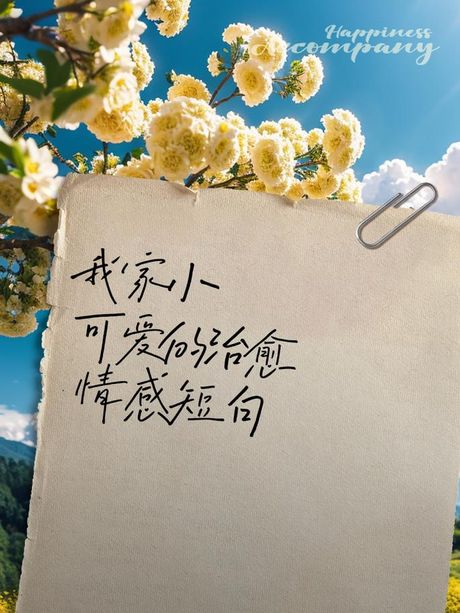 Happiness
accompany
我家小
可爱的治愈
情感短句